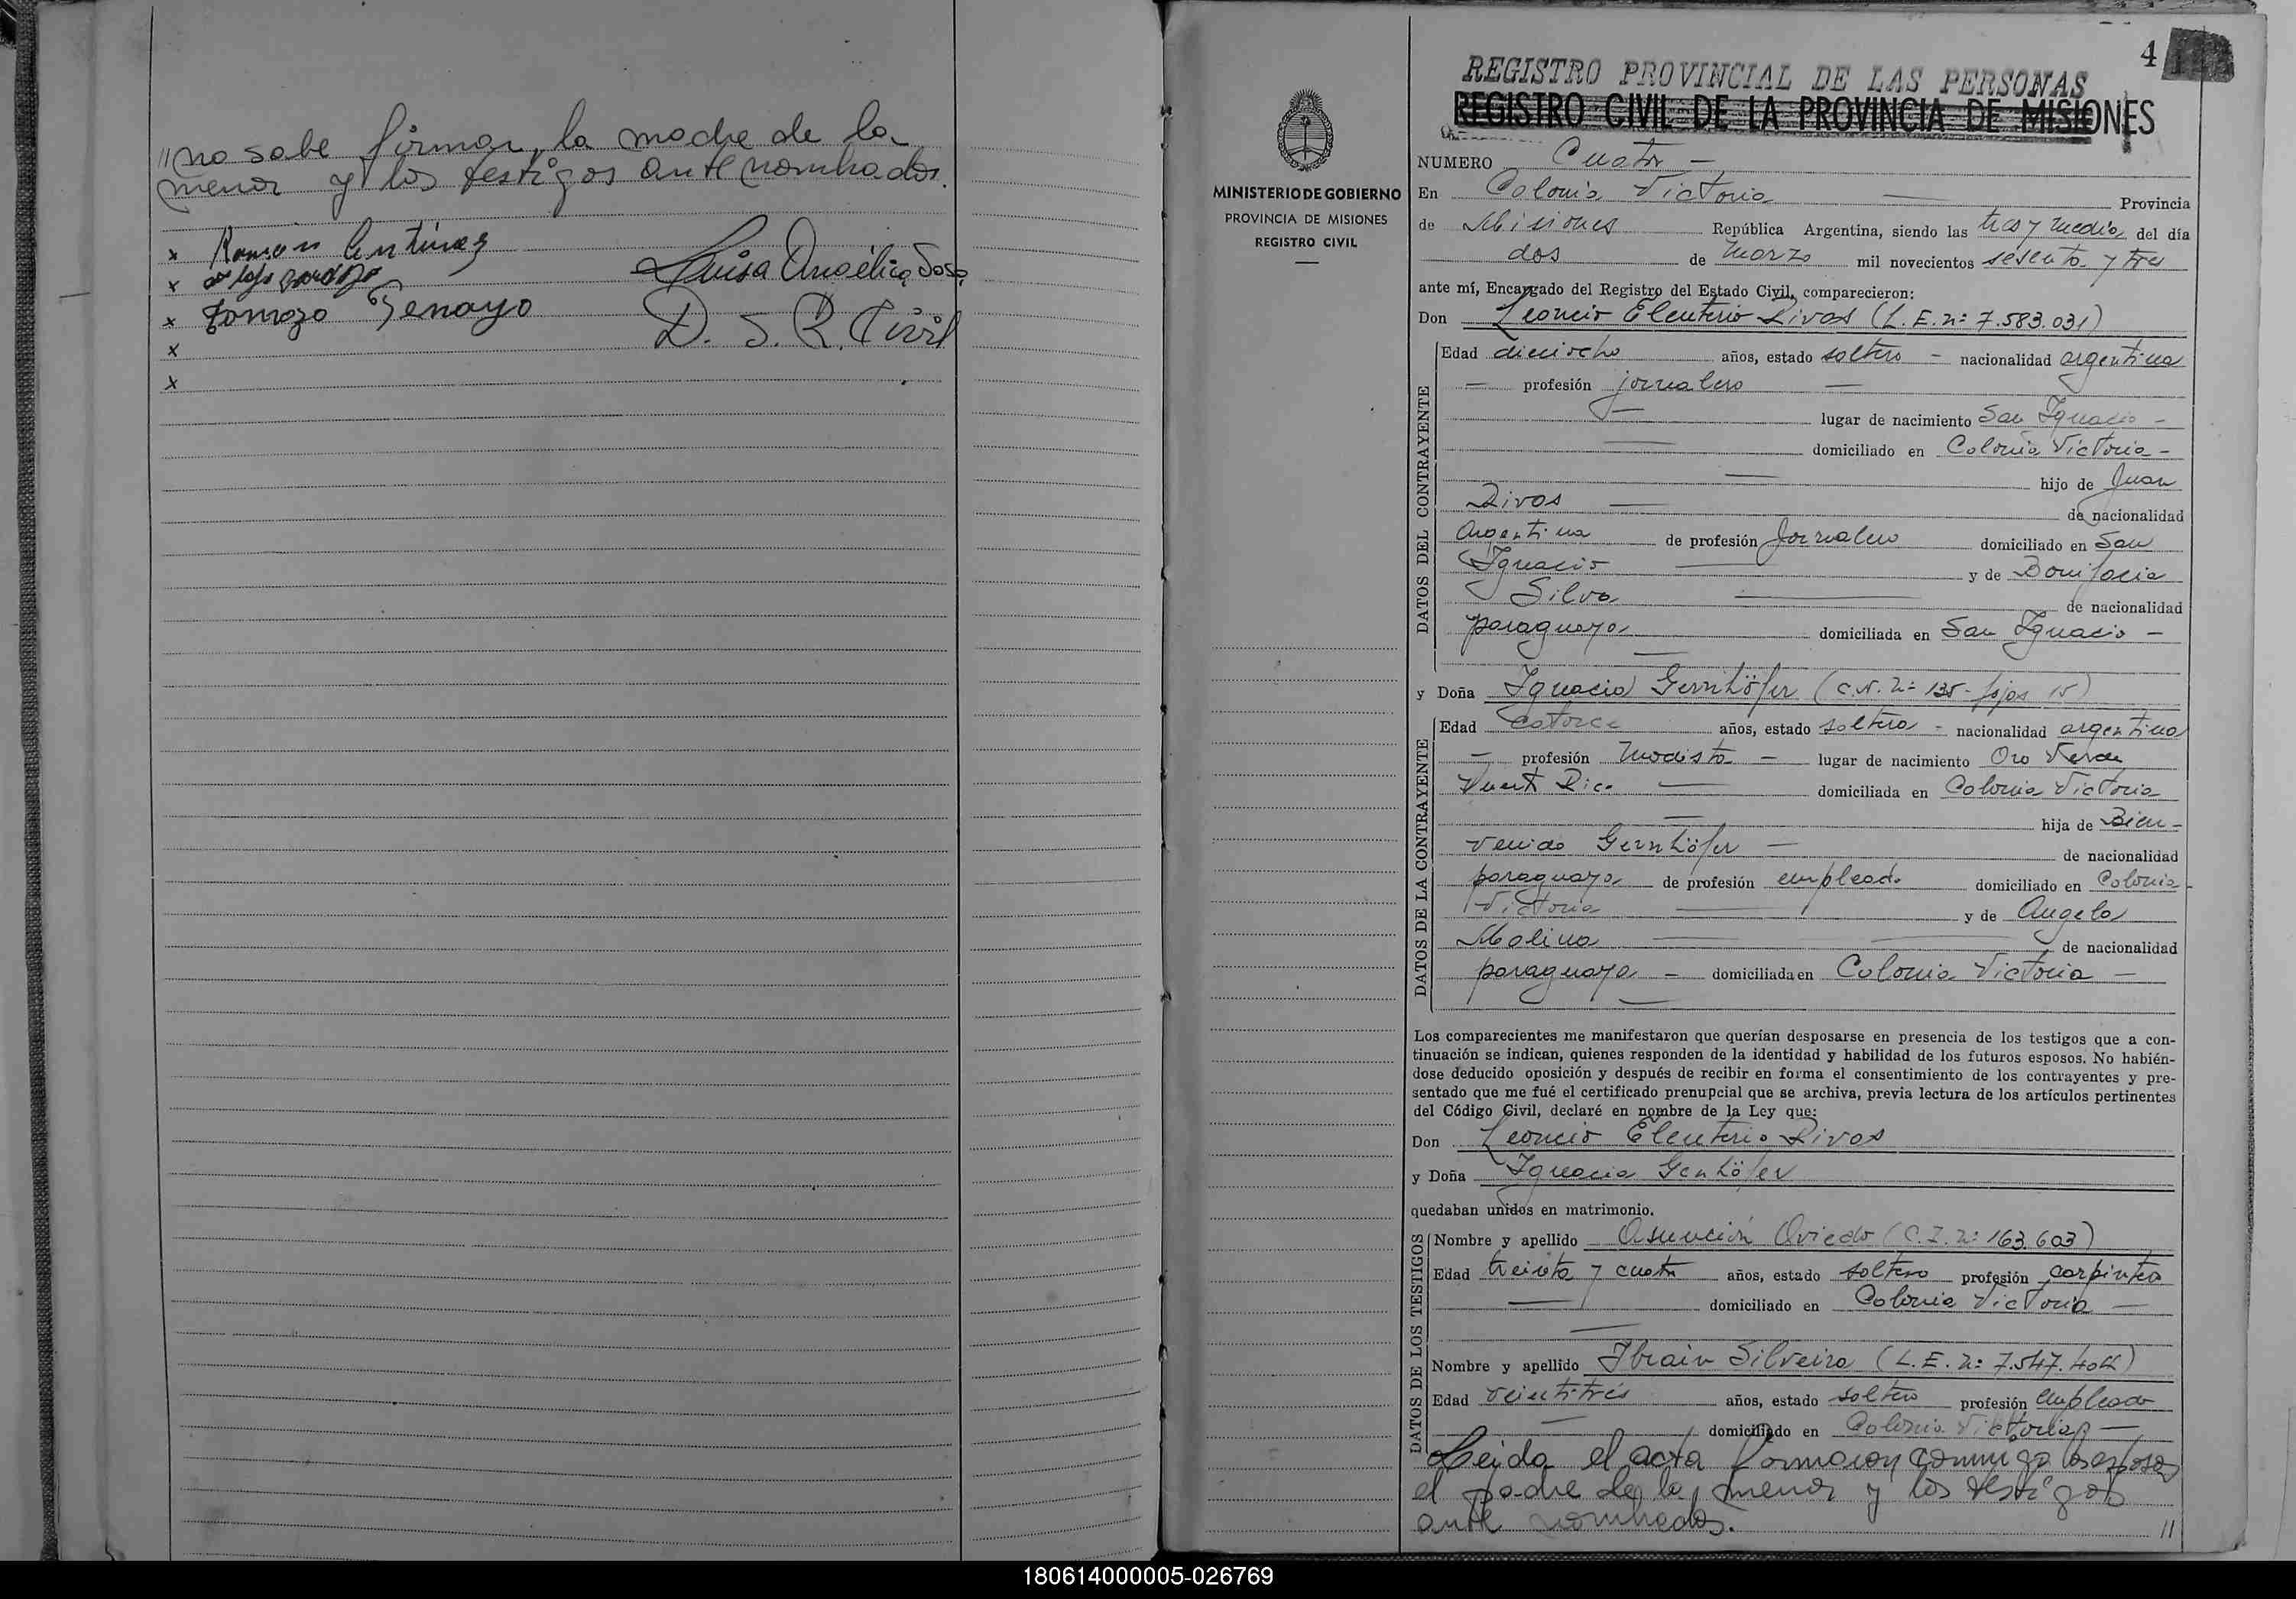 "no sabe firmar, la madre de la
menor y los testigos ante nombrados.
x Ramón Antúnez
x
x Tomazo Genayo
x
x
Luisa Angélica Sosa
D. S. R. Civil
4
REGISTRO PROVINCIAL DE LAS PERSONAS
REGISTRO CIVIL DE LA PROVINCIA DE MISIONES
MINISTERIO DE GOBIERNO
PROVINCIA DE MISIONES
REGISTRO CIVIL
NUMERO Cuatro —
En Colonia Victoria — Provincia
de Misiones República Argentina, siendo las tres y media del día
dos de Marzo mil novecientos sesenta y tres
ante mí, Encargado del Registro del Estado Civil, comparecieron:
Don Leoncio Eleuterio Rivas (L. E. nº 7.583.031)
DATOS DEL CONTRAYENTE
Edad dieciocho años, estado soltero — nacionalidad argentina
— profesión jornalero —
— lugar de nacimiento San Ignacio —
— domiciliado en Colonia Victoria —
— hijo de Juan
Rivas — de nacionalidad
Argentina de profesión Jornalero domiciliado en San
Ignacio — y de Bonifacia
Silva — de nacionalidad
paraguaya domiciliada en San Ignacio —
—
y Doña Ignacia Gernhöfer (C.N. nº 135 - fojas 15)
DATOS DE LA CONTRAYENTE
Edad Catorce años, estado soltera — nacionalidad argentina
— profesión Modista — lugar de nacimiento Oro Verde
Puerto Rico — domiciliada en Colonia Victoria
— hija de Bien-
venido Gernhöfer — de nacionalidad
paraguaya de profesión empleado domiciliado en Colonia
Victoria — y de Angela
Molina — de nacionalidad
paraguaya — domiciliada en Colonia Victoria —
—
Los comparecientes me manifestaron que querían desposarse en presencia de los testigos que a con-
tinuación se indican, quienes responden de la identidad y habilidad de los futuros esposos. No habién-
dose deducido oposición y después de recibir en forma el consentimiento de los contrayentes y pre-
sentado que me fué el certificado prenupcial que se archiva, previa lectura de los artículos pertinentes
del Código Civil, declaré en nombre de la Ley que:
Don Leoncio Eleuterio Rivas
y Doña Ignacia Genhöfer
quedaban unidos en matrimonio.
DATOS DE LOS TESTIGOS
Nombre y apellido Asunción Oviedo (C. I. nº 163.603)
Edad treinta y cuatro años, estado soltero profesión carpintero
— domiciliado en Colonia Victoria —
—
Nombre y apellido Ibrain Silveira (L. E. nº 7.547.404)
Edad veintitrés años, estado soltero profesión empleado
— domiciliado en Colonia Victoria —
Leida el acta firmaron conmigo los esposos
el padre de la menor y los testigos
ante nombrados. //
180614000005-026769